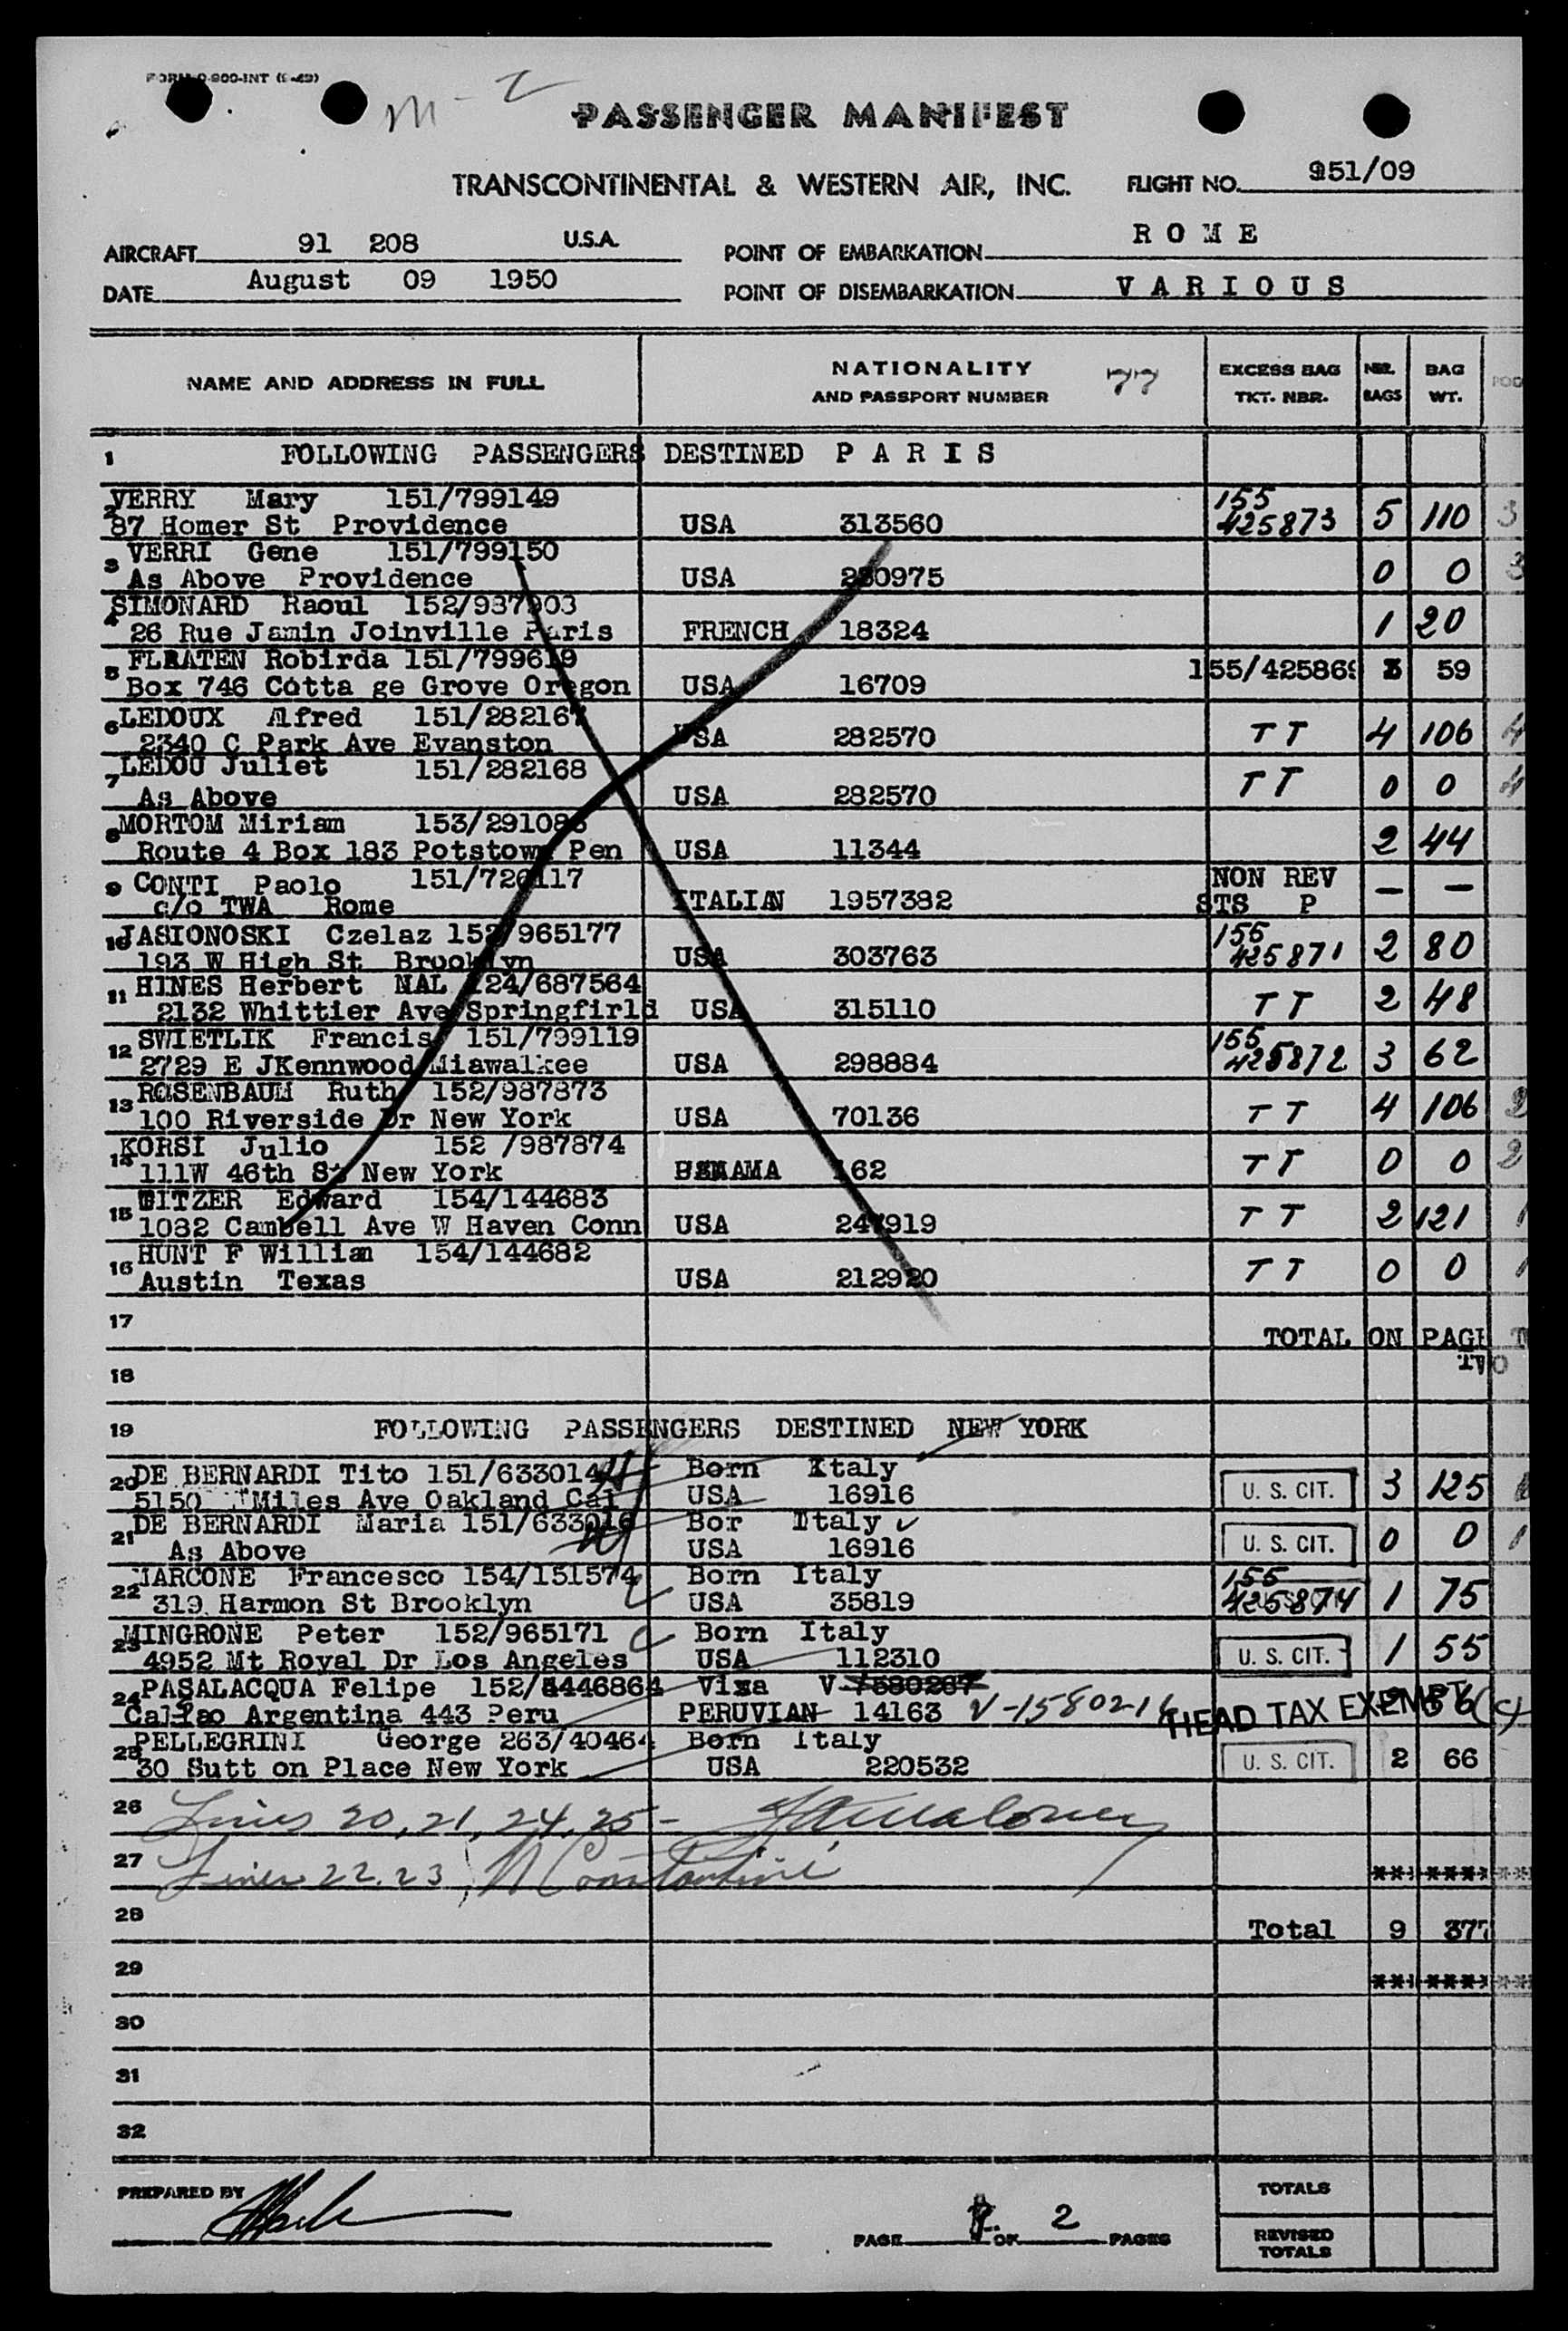 FORM O-900-INT (6-49)
M - 2
PASSENGER MANIFEST
TRANSCONTINENTAL & WESTERN AIR, INC.
FLIGHT NO. 951/09
AIRCRAFT 91 208 U.S.A.
POINT OF EMBARKATION R O M E
DATE August 09 1950
POINT OF DISEMBARKATION V A R I O U S
NAME AND ADDRESS IN FULL NATIONALITY AND PASSPORT NUMBER 77 EXCESS BAG TKT. NBR. NBR. BAGS BAG WT.
1 FOLLOWING PASSENGERS DESTINED P A R I S
2 VERRY Mary 151/799149 155
87 Homer St Providence USA 313560 425873 5 110 3
3 VERRI Gene 151/799150
As Above Providence USA 230975 0 0 3
4 SIMONARD Raoul 152/987903
26 Rue Jamin Joinville Paris FRENCH 18324 1 20
5 FLRATEN Robirda 151/799619
Box 746 Cotta ge Grove Oregon USA 16709 155/425869 3 59
6 LEDOUX Alfred 151/282167
2340 C Park Ave Evanston USA 282570 T T 4 106 4
7 LEDOU Juliet 151/282168
As Above USA 282570 T T 0 0 4
8 MORTOM Miriam 153/291086
Route 4 Box 183 Potstown Pen USA 11344 2 44
9 CONTI Paolo 151/726117 NON REV
c/o TWA Rome ITALIAN 1957382 STS P — —
10 JASIONOSKI Czelaz 152/965177 155
193 W High St Brooklyn USA 303763 425871 2 80
11 HINES Herbert NAL 124/687564
2132 Whittier Ave Springfirld USA 315110 T T 2 48
12 SWIETLIK Francis 151/799119 155
2729 E JKennwood Miawalkee USA 298884 425872 3 62
13 ROSENBAUM Ruth 152/987873
100 Riverside Dr New York USA 70136 T T 4 106 2
14 KORSI Julio 152 /987874
111W 46th St New York 162 T T 0 0 2
15 WITZER Edward 154/144683
1082 Cambell Ave W Haven Conn USA 247919 T T 2 121 1
16 HUNT F Willian 154/144682
Austin Texas USA 212920 T T 0 0 1
17 TOTAL ON PAGE
18
19 FOLLOWING PASSENGERS DESTINED NEW YORK
20 DE BERNARDI Tito 151/633014 Born Italy
5150 Miles Ave Oakland Cal USA 16916 U. S. CIT. 3 125
21 DE BERNARDI Maria 151/633016 Bor Italy
As Above USA 16916 U. S. CIT. 0 0 1
22 MARCONE Francesco 154/151574 Born Italy 155
319 Harmon St Brooklyn USA 35819 425874 1 75
23 MINGRONE Peter 152/965171 Born Italy
4952 Mt Royal Dr Los Angeles USA 112310 U. S. CIT. 1 55
24 PASALACQUA Felipe 152/4446864 Visa V 7580267
Callao Argentina 443 Peru PERUVIAN 14163 V-1580216 HEAD TAX EXEMPT 2 56
25 PELLEGRINI George 263/40464 Born Italy
30 Sutt on Place New York USA 220532 U. S. CIT. 2 66
26 Lines 20, 21, 24, 25 -
27 Lines 22. 23 ***** ****
28 Total 9 377
29 *** ****
30
31
32
PREPARED BY
PAGE OF 2 PAGES
TOTALS
REVISED TOTALS